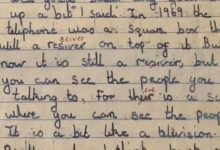 up a bit" I said. In 1969 the
telephone was a square box th
eciver
with a resiver on top of it Bu
now it is still a resiver, but
you can see the people you
talking to, For ther is a sc
ere
where you can see the peop
It is a bit like a television.